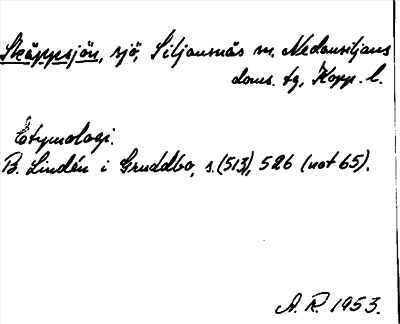 Skäppsjön, sjö, Siljansnäs sn, Nedansiljans
doms. tg, Kopp. l.
Etymologi.
B. Lindén i Gruddbo, s. (513), 526 (not 65).
A. R. 1953.